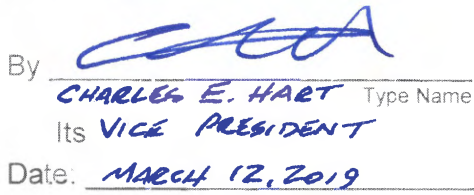 By
CHARLES E. HART Type Name
Its VICE PRESIDENT
Date: MARCH 12, 2019